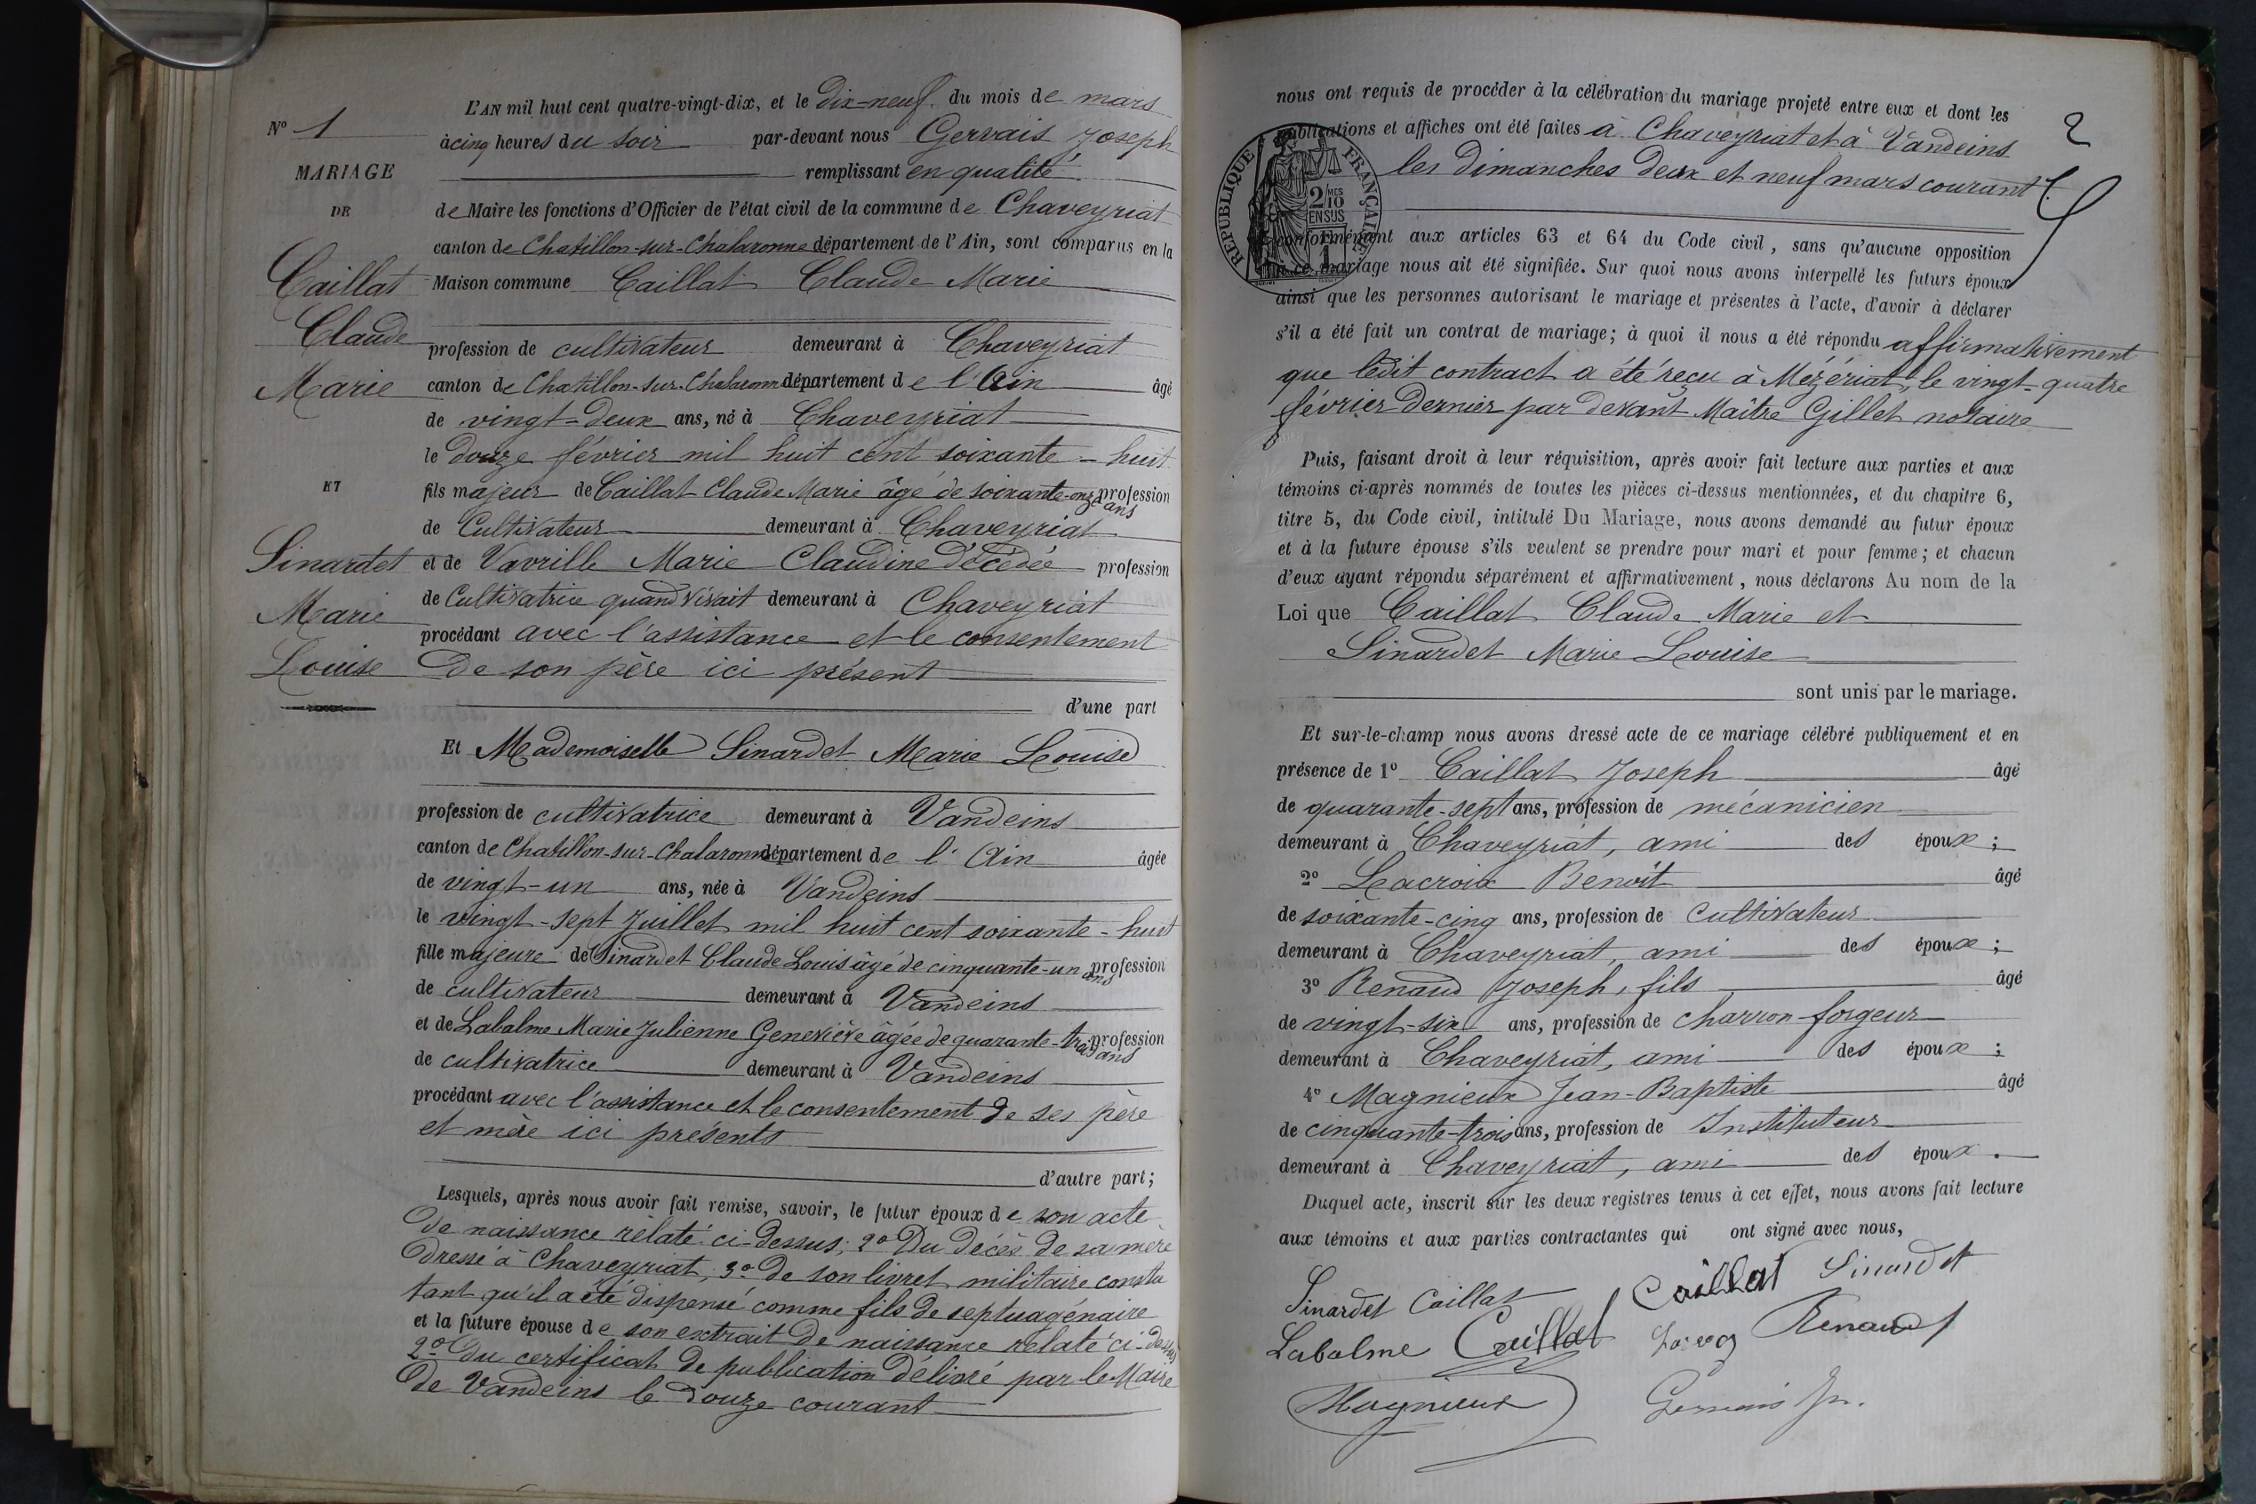 N° 1
MARIAGE
DE
Caillat
Claude
Marie
ET
Sinardet
Marie
Louise
L'AN mil huit cent quatre-vingt-dix, et le dix-neuf du mois de mars
à cinq heures du soir par-devant nous Gervais Joseph
remplissant en qualité
de Maire les fonctions d'Officier de l'état civil de la commune de Chaveyriat
canton de Chatillon-sur-Chalaronne département de l'Ain, sont comparus en la
Maison commune Caillat Claude Marie
profession de cultivateur demeurant à Chaveyriat
canton de Chatillon-sur-Chalaronne département de l'Ain âgé
de vingt-deux ans, né à Chaveyriat
le douze février mil huit cent soixante-huit
fils majeur de Caillat Claude Marie âgé de soixante-onze ans profession
de Cultivateur demeurant à Chaveyriat
et de Vavrille Marie Claudine décédée profession
de Cultivatrice quand vivait demeurant à Chaveyriat
procédant avec l'assistance et le consentement
de son père ici présent
d'une part
Et Mademoiselle Sinardet Marie Louise
profession de cultivatrice demeurant à Vandeins
canton de Chatillon-sur-Chalaronne département de l'Ain âgée
de vingt-un ans, née à Vandeins
le vingt-sept Juillet mil huit cent soixante-huit
fille majeure de Sinardet Claude Louis âgé de cinquante-un ans profession
de cultivateur demeurant à Vandeins
et de Labalme Marie Julienne Geneviève âgée de quarante-trois ans profession
de cultivatrice demeurant à Vandeins
procédant avec l'assistance et le consentement de ses père
et mère ici présents
d'autre part;
Lesquels, après nous avoir fait remise, savoir, le futur époux de son acte
de naissance rélaté ci-dessus; 2° Du décès de sa mère
dressé à Chaveyriat; 3° de son livret militaire consta
tant qu'il a été dispensé comme fils de septuagénaire
et la future épouse de son extrait de naissance rélaté ci-dessus
2° du certificat de publication délivré par le Maire
de Vandeins le douze courant
2
nous ont requis de procéder à la célébration du mariage projeté entre eux et dont les
publications et affiches ont été faites à Chaveyriat et à Vandeins
les dimanches deux et neuf mars courant
REPUBLIQUE FRANÇAISE
2 MES
10
EN SUS
1
conformément aux articles 63 et 64 du Code civil, sans qu'aucune opposition
à ce mariage nous ait été signifiée. Sur quoi nous avons interpellé les futurs époux
ainsi que les personnes autorisant le mariage et présentes à l'acte, d'avoir à déclarer
s'il a été fait un contrat de mariage; à quoi il nous a été répondu affirmativement
que ledit contract a été reçu à Mézériat, le vingt-quatre
février dernier par devant Maître Gillet notaire
Puis, faisant droit à leur réquisition, après avoir fait lecture aux parties et aux
témoins ci-après nommés de toutes les pièces ci-dessus mentionnées, et du chapitre 6,
titre 5, du Code civil, intitulé Du Mariage, nous avons demandé au futur époux
et à la future épouse s'ils veulent se prendre pour mari et pour femme; et chacun
d'eux ayant répondu séparément et affirmativement, nous déclarons Au nom de la
Loi que Caillat Claude Marie et
Sinardet Marie Louise
sont unis par le mariage.
Et sur-le-champ nous avons dressé acte de ce mariage célébré publiquement et en
présence de 1° Caillat Joseph âgé
de quarante-sept ans, profession de mécanicien
demeurant à Chaveyriat, ami des époux;
2° Lacroix Benoît âgé
de soixante-cinq ans, profession de cultivateur
demeurant à Chaveyriat, ami des époux;
3° Renaud Joseph, fils âgé
de vingt-six ans, profession de charron-forgeur
demeurant à Chaveyriat, ami des époux;
4° Magnieux Jean-Baptiste âgé
de cinquante-trois ans, profession de Instituteur
demeurant à Chaveyriat, ami des époux.
Duquel acte, inscrit sur les deux registres tenus à cet effet, nous avons fait lecture
aux témoins et aux parties contractantes qui ont signé avec nous,
Sinardet Caillat Caillat Sinardet
Labalme Caillat Renaud
Magnieux Gervais Jh.